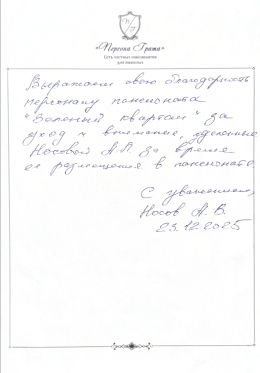 «Персона Грата»
Сеть частных пансионатов
для пожилых
Выражаем свою благодарность
персоналу пансионата
"Зеленый квартал" за
уход и внимание, уделенные
Носовой А П за время
ее размещения в пансионате.
С уважением,
Носов А. В.
23.12.2025